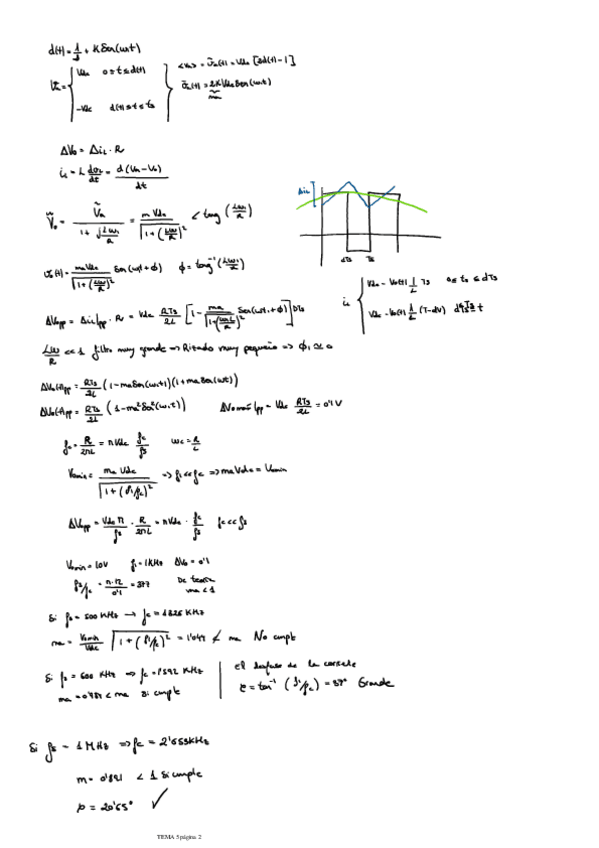 d(t) = 1/2 + K Sen(ω₁t)
Vₐ = { Vdc 0≤t≤d(t)
-Vdc d(t)≤t≤ts }
<Vₐ> = v̄ₐ(t) = Vdc [2d(t)-1]
ṽₐ(t) = 2K Vdc Sen(ω₁t)
ma
ΔV₀ = ΔiL · R
iL = L diL/dt = d(Va-V₀)/dt
Ṽ₀ = Ṽa / (1 + jLω₁/R) = m Vdc / √(1+(Lω₁/R)²) < tang (Lω₁/R)
ΔiL
dTs Ts
V₀(t) = ma Vdc / √(1+(Lω₁/R)²) Sen(ω₁t+ϕ) ϕ = tang⁻¹ (Lω₁/R)
iL { Vdc - V₀(t) 1/L Ts 0≤ Ts ≤ dTs
Lω/R << 1 filtro muy grande => Ritado muy pequeño => ϕ₁ ≃ 0
ΔV₀(t)pp = RTs/2L (1 - ma Sen(ω₁t)) (1 + ma Sen(ωt))
ΔV₀(t)pp = RTs/2L (1 - ma² Sen²(ω₁t)) ΔV₀max|pp = Vdc RTs/2L = 0'1 V
ωc = R/L
V₀min = ma Vdc / √(1+(f₁/fc)²) => f₁<<fc => ma Vdc = V₀min
ΔV₀pp = Vdc π/fs · R/2πL = π Vdc · fc/fs fc<<fs
V₀min = 10V f₁ = 1KHz ΔV₀ = 0'1
fs/fc = π·12/0'1 = 377 De teoria
ma < 1
Si fs = 500 KHz → fc = 1'326 KHz
ma = V₀min/Vdc √(1+(f₁/fc)²) = 1'044 ≮ ma No cumple
Si fs = 600 KHz => fc = 1'592 KHz
ma = 0'984 < ma Si cumple
el desfase de la corriente
φ = tan⁻¹ (f₁/fc) = 37° Grande
Si fs = 1 MHz => fc = 2'653KHz
m = 0'891 < 1 Si cumple
φ = 20'65° ✓
TEMA 5 página 2